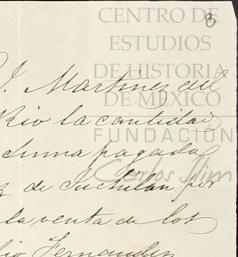 CENTRO DE
ESTUDIOS
DE HISTORIA
DE MÉXICO
FUNDACIÓN
Carlos Slim
8
J. Martinez del
Rio la cantidad
suma pagada
de Juchitan por
la venta de los
Fernandez